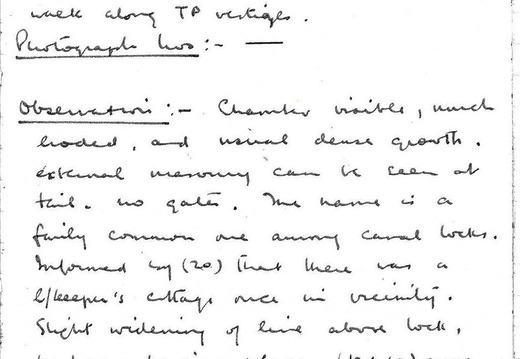 walk along TP vestiges.
Photograph Nos :- —
Observations :- Chamber visible, much
eroded, and usual dense growth.
external masonry can be seen at
tail. no gates. The name is a
fairly common one among canal locks.
Informed by (20) that there was a
l/keeper's cottage once in vicinity.
Slight widening of line above lock,